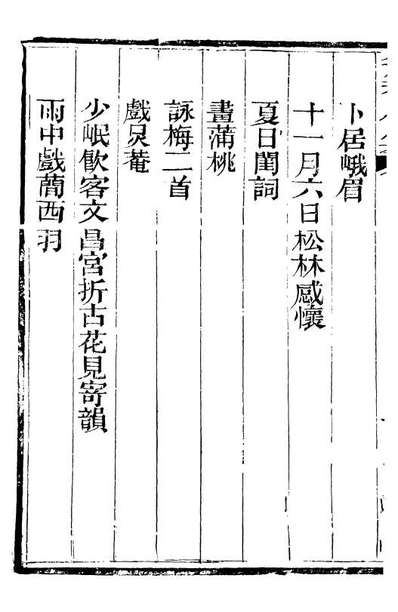 卜居峨眉
十一月六日松林感懷
夏日閨詞
畫蒲桃
詠梅二首
戲炅菴
少岷飲客文昌宮折古花見寄韻
雨中戲蘭西羽